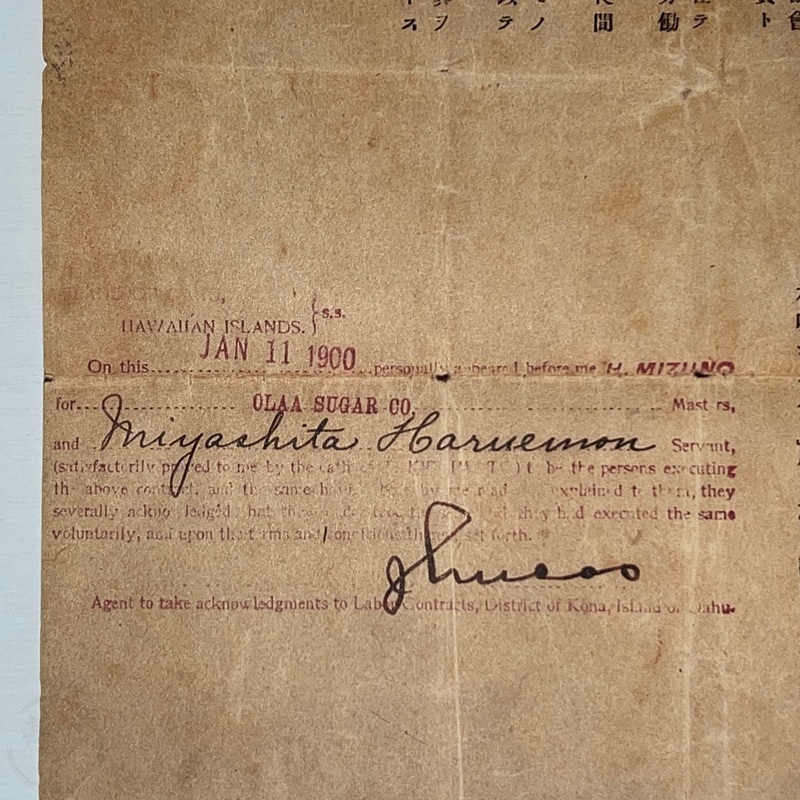 ス ヲ テ ノ 間 働 テ ト
HAWAIIAN ISLANDS. } s.s.
On this JAN 11 1900 personally appeared before me H. MIZUNO
for OLAA SUGAR CO. Masters,
and Miyashita Haruemon Servant,
(satisfactorily proved to me by the oath of to be the persons executing
the above contract, and the same having been by me read explained to them, they
severally acknowledged that they had executed the same
voluntarily, and upon the terms and conditions therein set forth.
Agent to take acknowledgments to Labor Contracts, District of Kona, Island of Oahu.